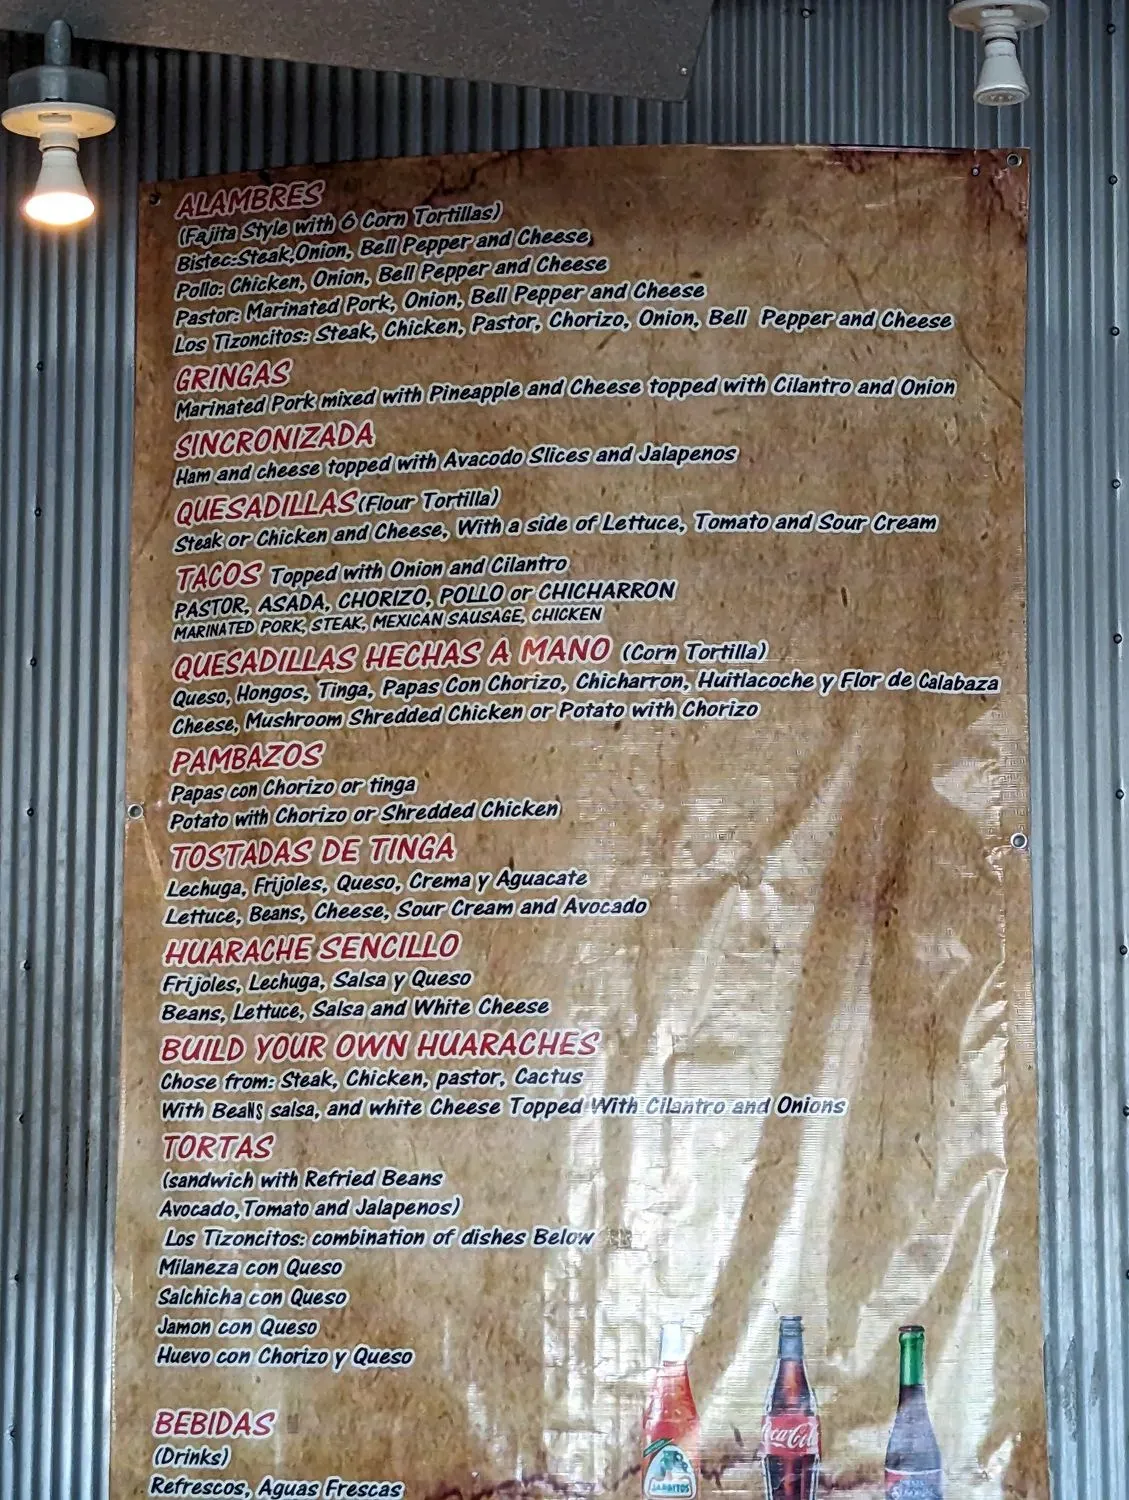 ALAMBRES
(Fajita Style with 6 Corn Tortillas)
Bistec:Steak,Onion, Bell Pepper and Cheese,
Pollo: Chicken, Onion, Bell Pepper and Cheese
Pastor: Marinated Pork, Onion, Bell Pepper and Cheese
Los Tizoncitos: Steak, Chicken, Pastor, Chorizo, Onion, Bell Pepper and Cheese
GRINGAS
Marinated Pork mixed with Pineapple and Cheese topped with Cilantro and Onion
SINCRONIZADA
Ham and cheese topped with Avacodo Slices and Jalapenos
QUESADILLAS(Flour Tortilla)
Steak or Chicken and Cheese, With a side of Lettuce, Tomato and Sour Cream
TACOS Topped with Onion and Cilantro
PASTOR, ASADA, CHORIZO, POLLO or CHICHARRON
MARINATED PORK, STEAK, MEXICAN SAUSAGE, CHICKEN
QUESADILLAS HECHAS A MANO (Corn Tortilla)
Queso, Hongos, Tinga, Papas Con Chorizo, Chicharron, Huitlacoche y Flor de Calabaza
Cheese, Mushroom Shredded Chicken or Potato with Chorizo
PAMBAZOS
Papas con Chorizo or tinga
Potato with Chorizo or Shredded Chicken
TOSTADAS DE TINGA
Lechuga, Frijoles, Queso, Crema y Aguacate
Lettuce, Beans, Cheese, Sour Cream and Avocado
HUARACHE SENCILLO
Frijoles, Lechuga, Salsa y Queso
Beans, Lettuce, Salsa and White Cheese
BUILD YOUR OWN HUARACHES
Chose from: Steak, Chicken, pastor, Cactus
With BeaNS salsa, and white Cheese Topped With Cilantro and Onions
TORTAS
(sandwich with Refried Beans
Avocado,Tomato and Jalapenos)
Los Tizoncitos: combination of dishes Below
Milaneza con Queso
Salchicha con Queso
Jamon con Queso
Huevo con Chorizo y Queso
BEBIDAS
(Drinks)
Refrescos, Aguas Frescas
Coca-Cola
JARRITOS